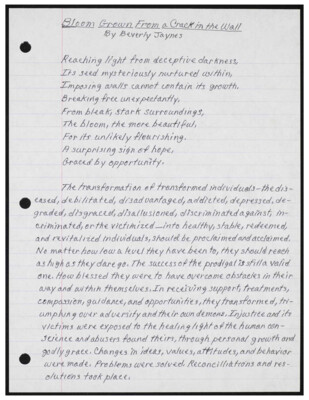 Bloom Grown From a Crack in the Wall
By Beverly Jaynes
Reaching light from deceptive darkness
Its seed mysteriously nurtured within,
Imposing walls cannot contain its growth.
Breaking free unexpectantly,
From bleak, stark surroundings,
The bloom, the more beautiful,
For its unlikely flourishing.
A surprising sign of hope,
Graced by opportunity.
The transformation of transformed individuals—the dis-
eased, debilitated, disadvantaged, addicted, depressed, de-
graded, disgraced, disallusioned, discriminated against, in-
criminated, or the victimized—into healthy, stable, redeemed
and revitalized individuals, should be proclaimed and acclaimed.
No matter how low a level they have been to, they should reach
as high as they dare go. The success of the prodigal is still a valid
one. How blessed they were to have overcome obstacles in their
way and within themselves. In receiving support, treatments,
compassion, guidance, and opportunities, they transformed, tri-
umphing over adversity and their own demons. Injustice and its
victims were exposed to the healing light of the human con-
science and abusers found theirs, through personal growth and
godly grace. Changes in ideas, values, attitudes, and behavior
were made. Problems were solved. Reconciliations and res-
olutions took place.